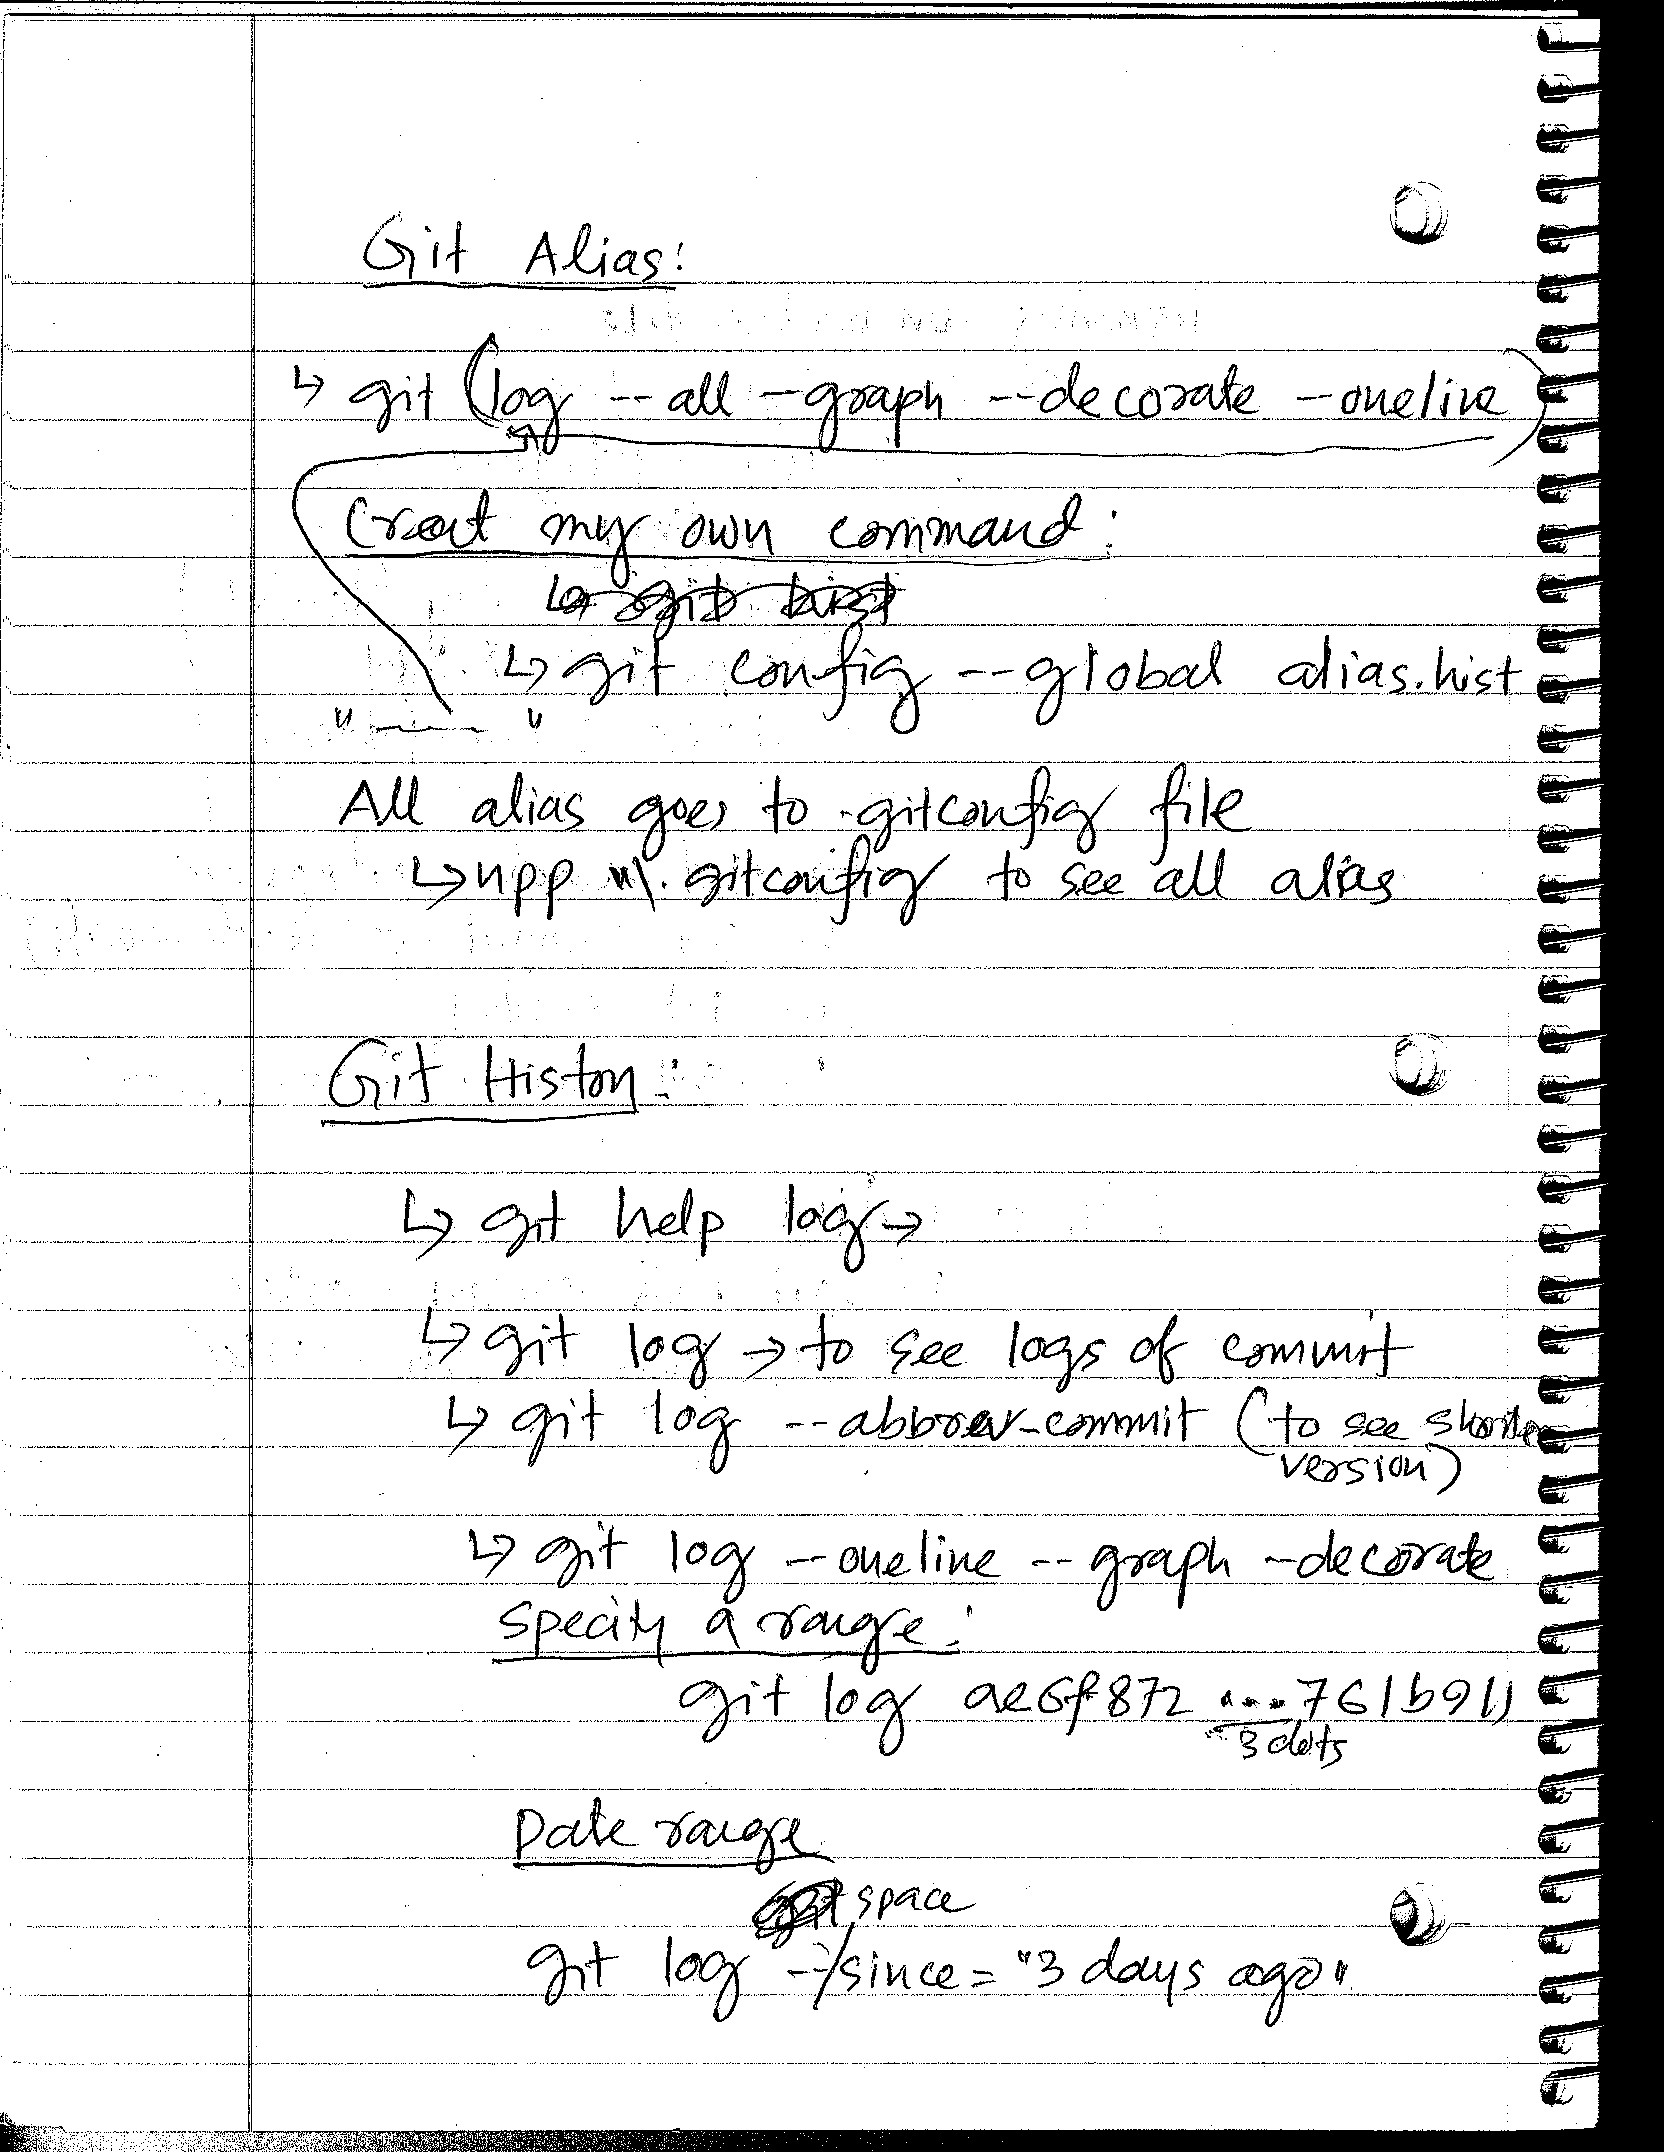 Git Alias:
↳ git (log --all --graph --decorate --oneline)
Creat my own command:
↳ git hist
↳ git config --global alias.hist
"——— "
All alias goes to .gitconfig file
↳ npp ~/.gitconfig to see all alias
Git History:
↳ git help log →
↳ git log → to see logs of commit
↳ git log --abbrev-commit (to see shorter
version)
↳ git log --oneline --graph --decorate
specify a range:
git log ae6f872 ...761b911
3 dots
Date range
space
git log --/since="3 days ago"